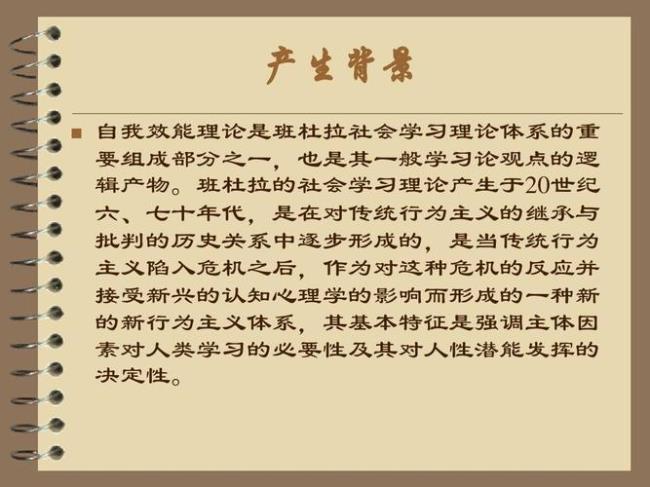 产生背景
自我效能理论是班杜拉社会学习理论体系的重
要组成部分之一，也是其一般学习论观点的逻
辑产物。班杜拉的社会学习理论产生于20世纪
六、七十年代，是在对传统行为主义的继承与
批判的历史关系中逐步形成的，是当传统行为
主义陷入危机之后，作为对这种危机的反应并
接受新兴的认知心理学的影响而形成的一种新
的新行为主义体系，其基本特征是强调主体因
素对人类学习的必要性及其对人性潜能发挥的
决定性。